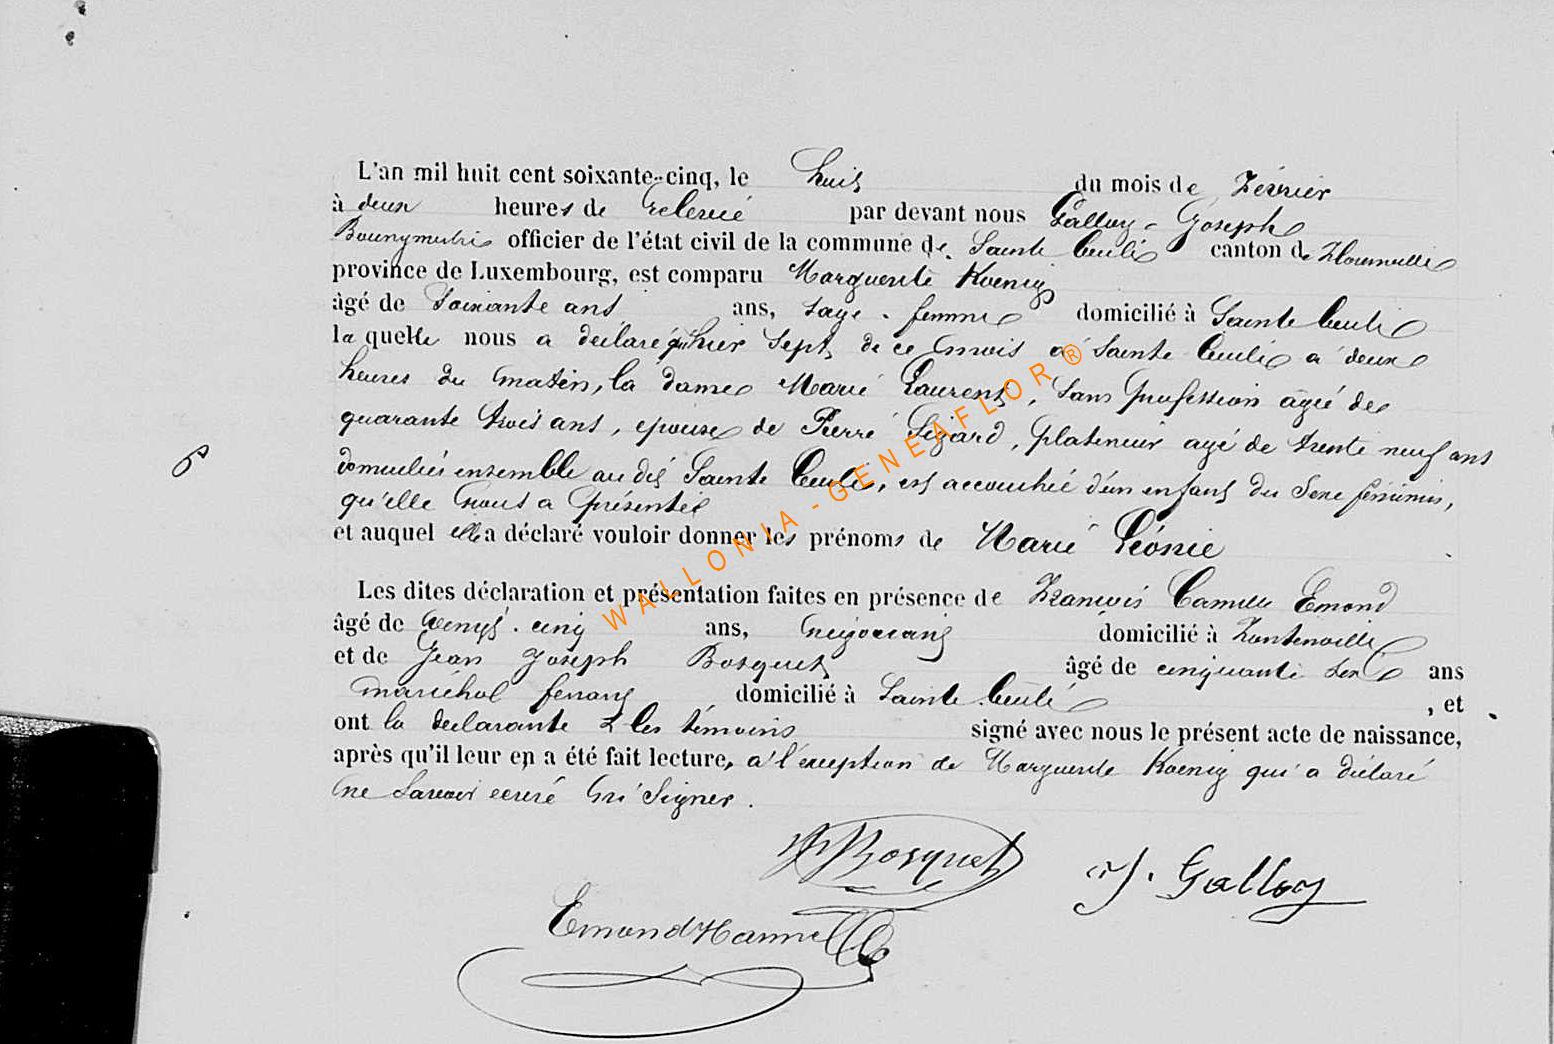 L'an mil huit cent soixante-cinq, le huit du mois de Février
à deux heures de relevée par devant nous Galloy Joseph
Bourgmestre officier de l'état civil de la commune de Sainte Cécile canton de Florenville
province de Luxembourg, est comparu Marguerite Koenig
âgé de Soixante ans ans, sage-femme domicilié à Sainte Cécile
la quelle nous a déclaré qu'hier sept de ce mois à Sainte Cécile à deux
heures du matin, la dame Marie Laurent, sans profession agée de
quarante trois ans, épouse de Pierre Sizard, platineur agé de trente neuf ans
domiciliés ensemble au dit Sainte Cécile, est accouchée d'un enfant du sexe féminin,
qu'elle nous a présenté
et auquel elle a déclaré vouloir donner les prénoms de Marie Léonie
Les dites déclaration et présentation faites en présence de François Camille Emond
âgé de vingt-cinq ans, négociant domicilié à Fontenoille
et de Jean Joseph Bosquet âgé de cinquante ans
maréchal ferrant domicilié à Sainte Cécile, et
ont la déclarante & les témoins signé avec nous le présent acte de naissance,
après qu'il leur en a été fait lecture, à l'exception de Marguerite Koenig qui a déclaré
ne savoir écrire ni signer.
JJBosquet J. Galloy
Emond
6
WALLONIA-GENEAFLOR®